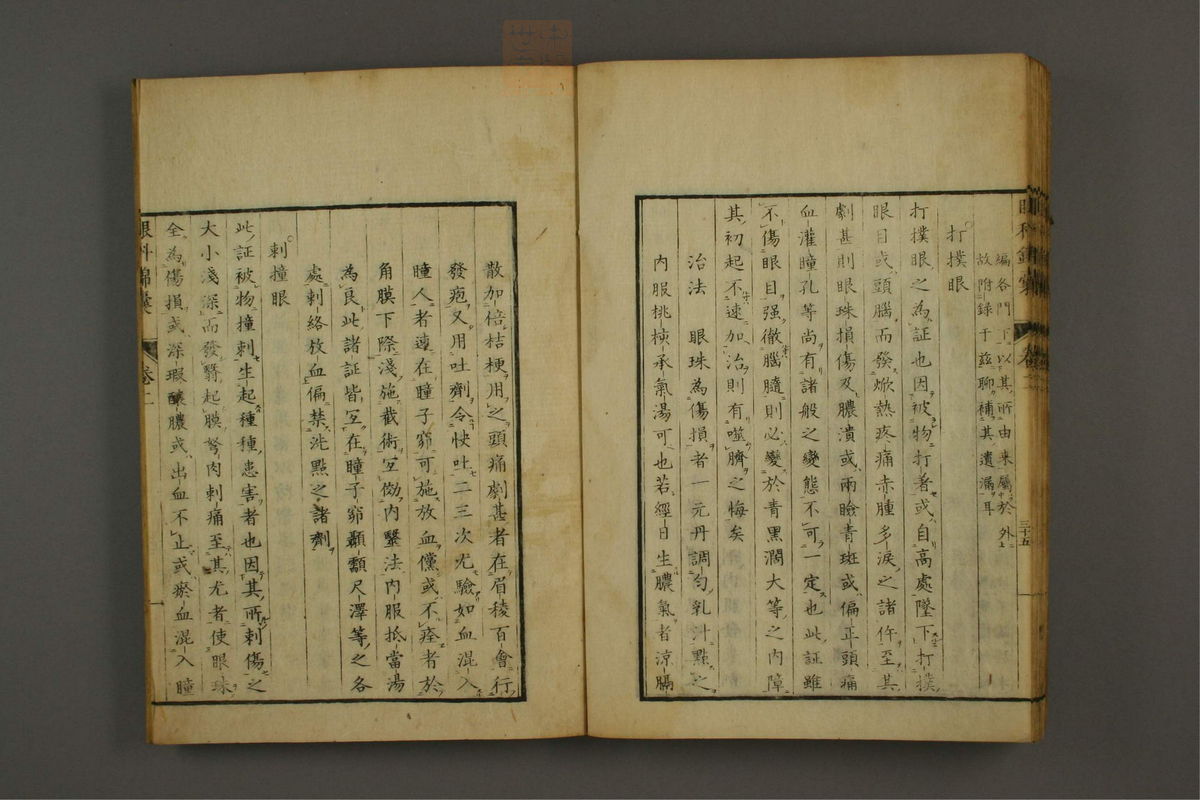 編各門下以其所由来屬於外
故附録于茲聊補其遺漏耳
三十五
打撲眼
打撲眼之為証也因被物打著或自高處墜下打撲
眼目或頭腦而發焮熱疼痛赤腫多淚之諸件至其
劇甚則眼珠損傷及膿潰或兩瞼青斑或偏正頭痛
血灌瞳孔等尚有諸般之變態不可一定也此証雖
不傷眼目强徹腦髓則必變於青黑潤大等之内障
其初起不速加治則有噬臍之悔矣
治法 眼珠為傷損者一元丹調勻乳汁點之
内服桃核承氣湯可也若經日生膿氣者涼膈
散加倍桔梗用之頭痛劇甚者在眉稜百會行
發疱又用吐劑令快吐二三次尤驗如血混入
瞳人者速在瞳子窌可施放血儻或不痊者於
角膜下際淺施截術宐倣内翳法内服抵當湯
為良此諸証皆宐在瞳子窌顬顬尺澤等之各
處刺絡放血偏禁洗點之諸劑
刺撞眼
此証被物撞刺生起種種患害者也因其所刺傷之
大小淺深而發翳起膜努肉刺痛至其尤者使眼珠
全為傷損或深瑕釀膿或出血不止或瘀血混入瞳
眼科錦囊
卷二